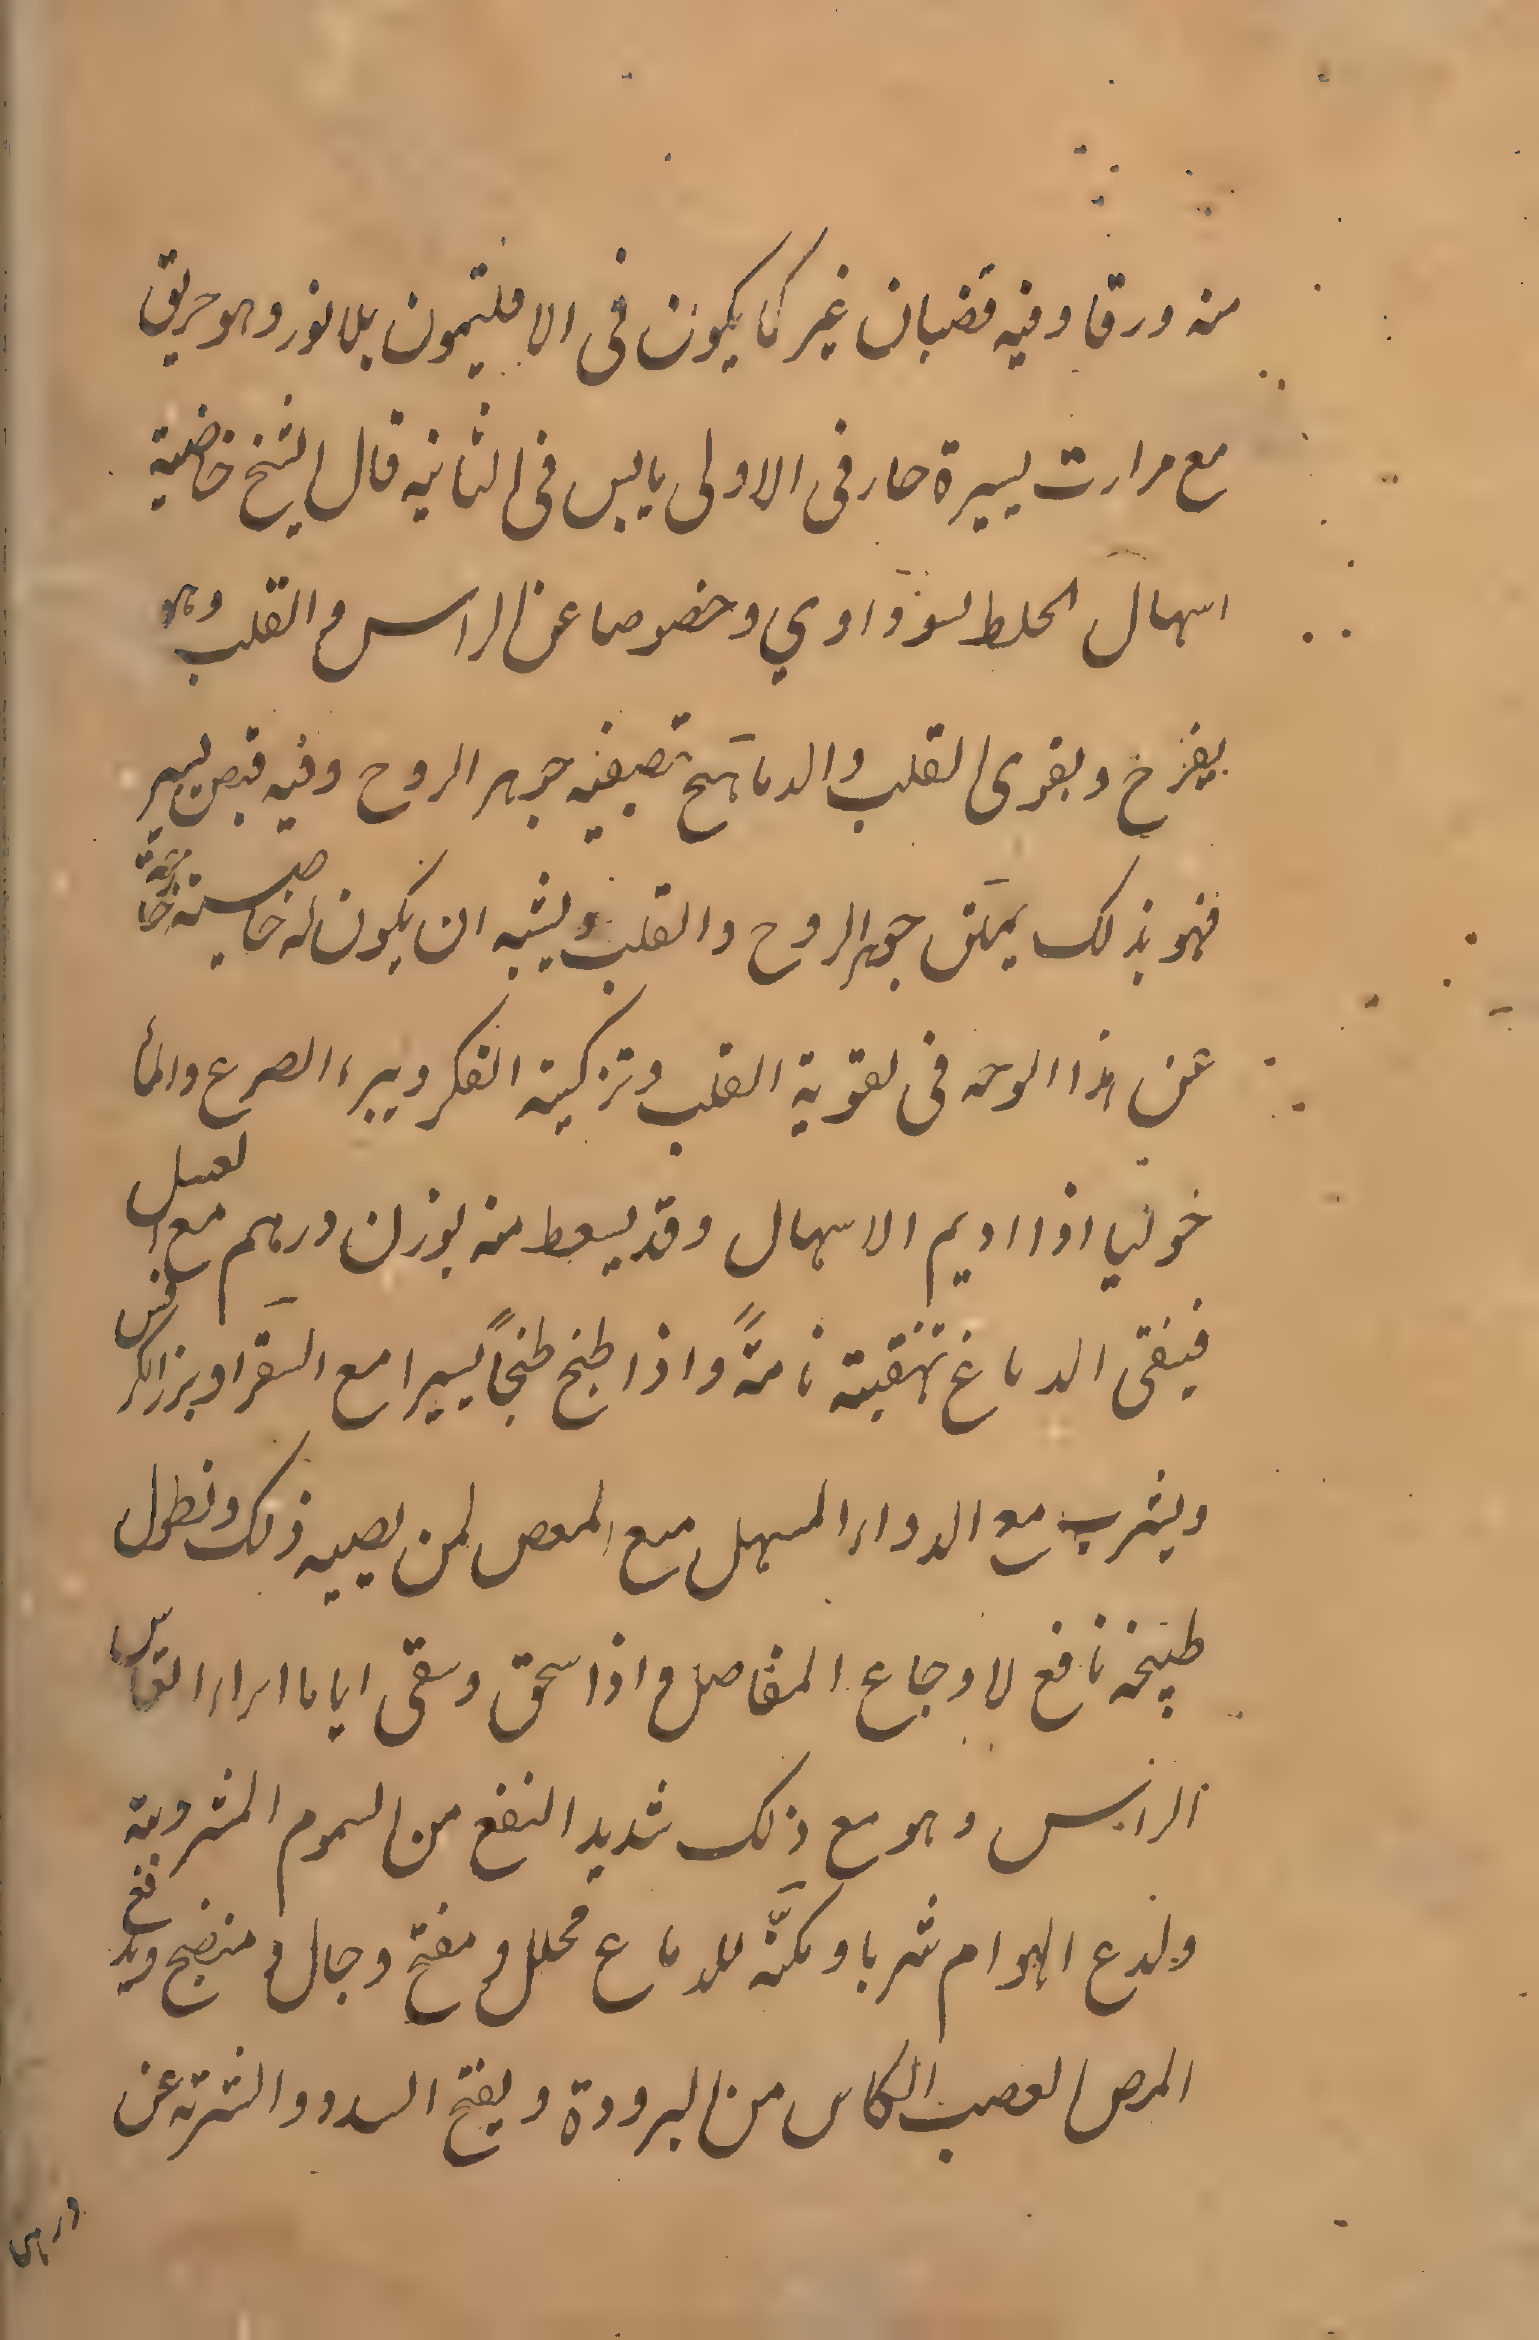 منه ورقا وفيه قضبان غبر كما يكون فى الافليتمون بلا نور وهو حريق
مع مرارت يسيرة حار فى الاولى يابس فى الثانيه قال الشيخ خاضية
اسهال الخلط لسوداوي وخصوصا عن الراس والقلب وهو
يفرح ويقوى القلب والدماغ تصفيه جوهر الروح وفيه قبض يسير
فهو بذلك يمتن جوهر الروح والقلب ويشبه ان يكون له خاصية خارجة
عن هذا الوجه فى تقوية القلب وتزكية الفكر ويبرء الصرع والما
خوليا اذا اديم الاسهال وقد يسعط منه بوزن درهم مع العسل
فينقى الدماغ تنقية تامةً واذا طبخ طبخاً يسيرا مع السقر او بزر الكرفس
ويشرب مع الدواء المسهل منع المغص لمن يصيبه ذلك ونطول
طبيخه نافع لاوجاع المفاصل واذا سحق وسقى اياما ابراء
وهو مع ذلك شديد النفع من السموم المشروبة
ولدع الهوام شربا ومكنّه للدماع محلل ومفتح وجال ومنضج ويدفع
المرض العصب الكاس من البرودة ويفتح السدد والشربه عن